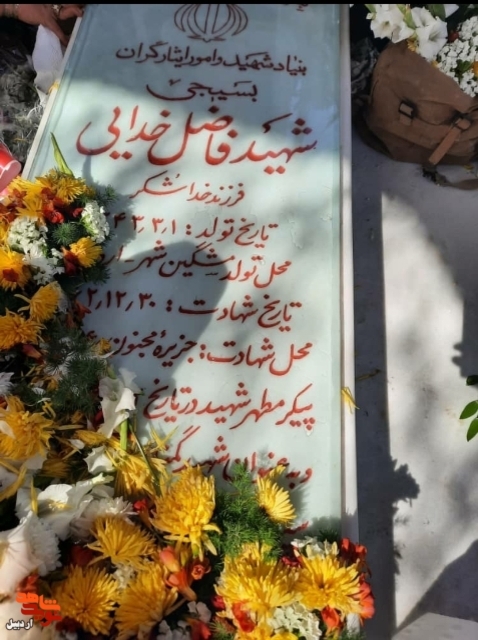 بنیاد شهید و امور ایثارگران
بسیجی
شهید فاضل خدایی
فرزند خداشکر
تاریخ تولد : ۴۳٫۳٫۱
محل تولد مشگین شهر
تاریخ شهادت : ۲٫۱۲٫۳۰
محل شهادت : جزیره مجنون
پیکر مطهر شهید در تاریخ
و به عنوان شهید
اردبیل